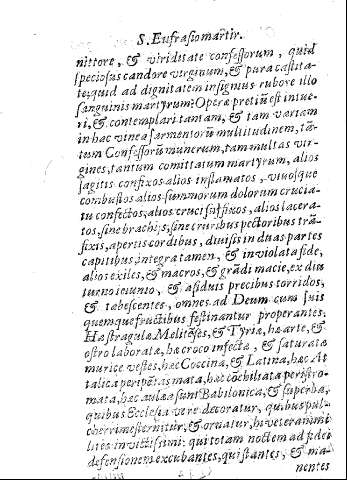 S. Eufrasio martir.
nittore, & viriditate confessorum, quid
speciosus candore virginum, & pura castita-
te; quid ad dignitatem insignius rubore illo
sanguinis martyrum? Operę pretiũ est intue-
ri, & contemplari tantam, & tam variam
in hac vinea sarmentorũ multitudinem, tã-
tum Confessorũ numerum, tam multas vir-
gines, tantum comittatum martyrum, alios
sagitis confixos alios inflamatos, viuosque
combustos alios summorum dolorum crucia-
tu confectos, alios cruci suffixos, alios lacera-
tos, sine brachijs, sine cruribus pectoribus trã-
fixis, apertis cordibus, diuisis in duas partes
capitibus, integra tamen, & inviolata fide,
alios exiles, & macros, & grãdi macie, ex diu
turno ieiunio, & asiduis precibus torridos,
& tabescentes, omnes ad Deum cum suis
quemque fructibus festinantur properantes.
Hæ stragulæ Melitẽses, & Tyriæ, hæ arte, &
ostro laboratæ, hæ croco infectæ, & saturatæ
murice vestes, hæc Coccina, & Latina, hæc At
talica peripetasmata, hæc cõchiliata peristro-
mata, hæc aulæa sunt Babilonica, & superba,
quibus Ecclesia vere decoratur, quibus pul-
cherrime sternitur, & ornatur, hi veterani mi
lites invictissimi: qui totam noctem ad fidei
defensionem excubantes, qui stantes, & ma-
nentes